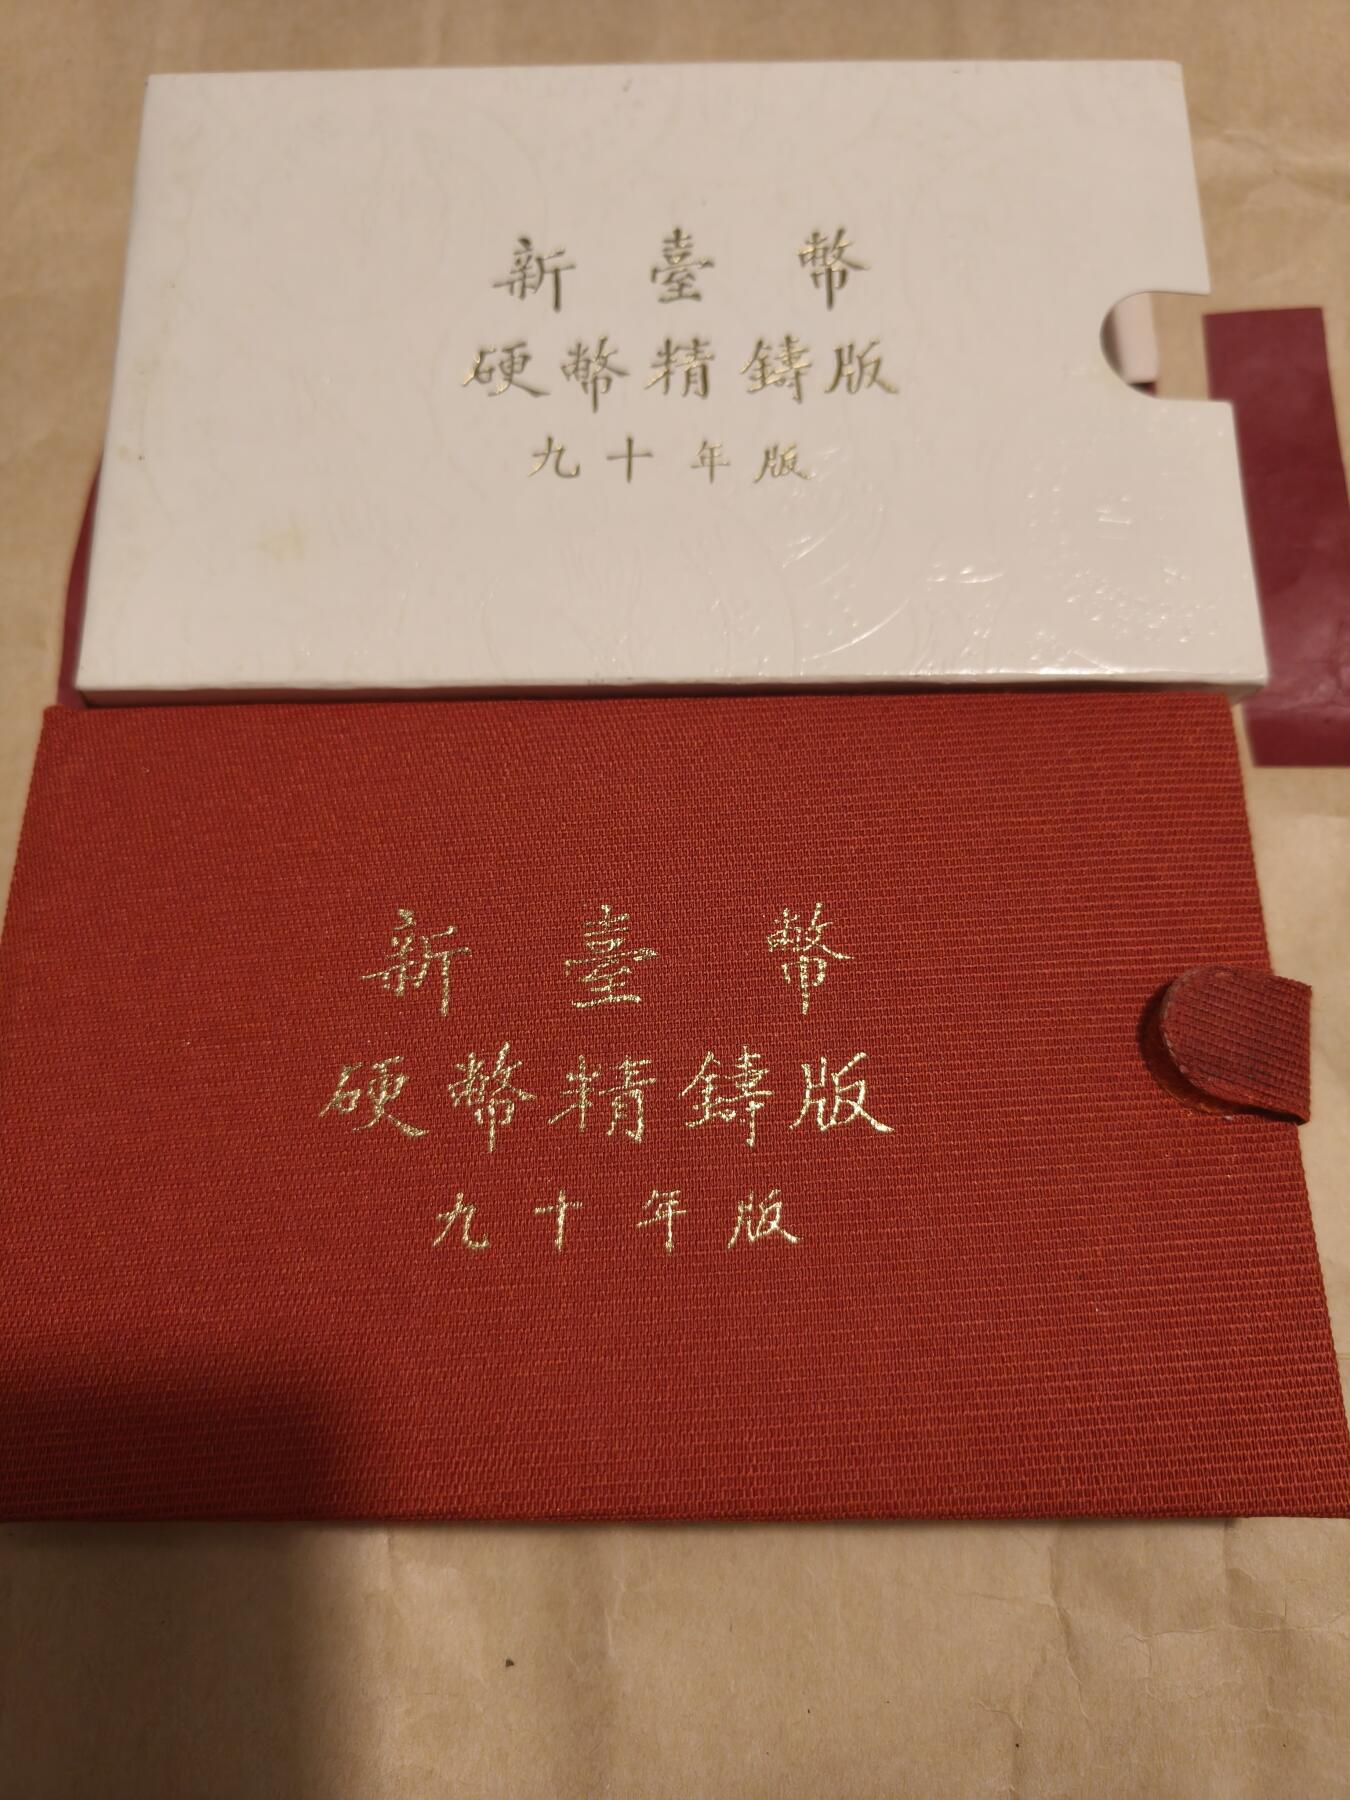 新臺幣
硬幣精鑄版
九十年版
新臺幣
硬幣精鑄版
九十年版